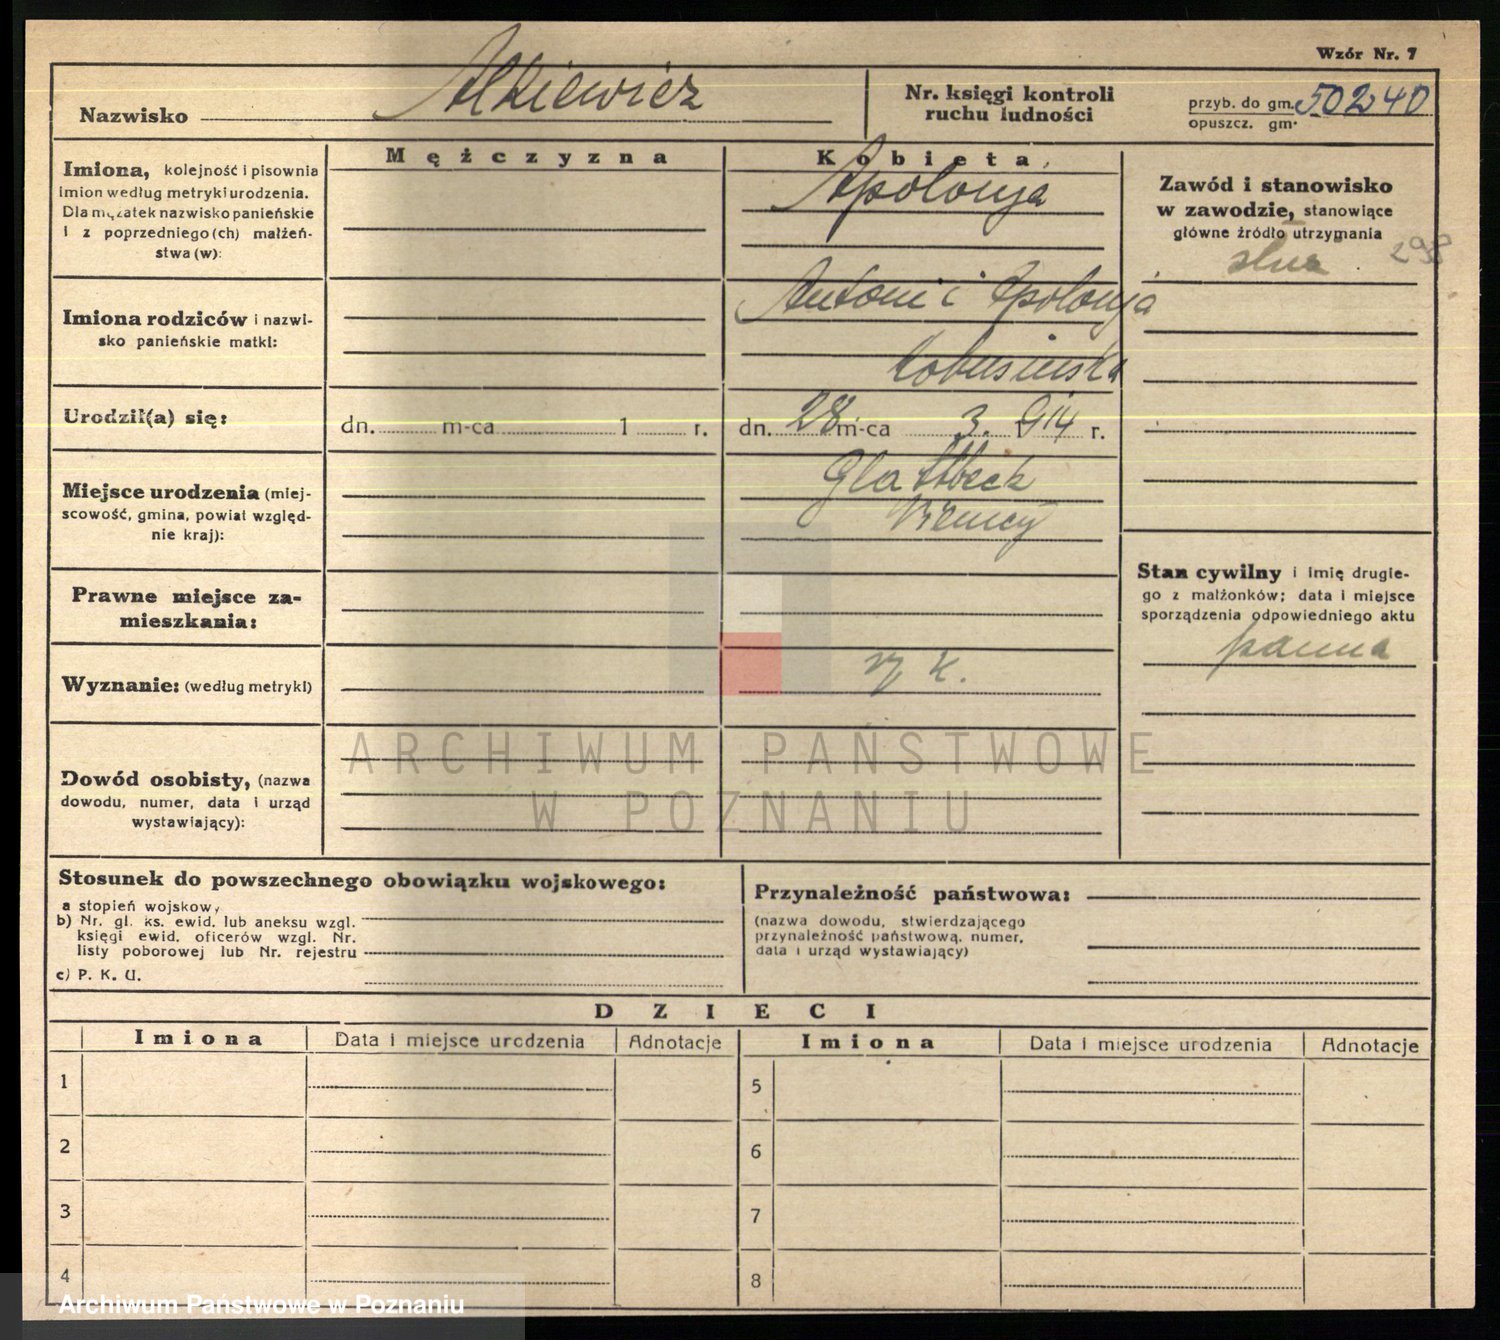 Wzór Nr. 7
Nazwisko Alkiewicz
Nr. księgi kontroli
ruchu ludności
przyb. do gm. 50240
opuszcz. gm.
Mężczyzna
Kobieta
Imiona, kolejność i pisownia
imion według metryki urodzenia.
Dla mężatek nazwisko panieńskie
i z poprzedniego(ch) małżeń-
stwa(w):
Apolonja
Zawód i stanowisko
w zawodzie, stanowiące
główne źródło utrzymania
służ 298
Imiona rodziców i nazwi-
sko panieńskie matki:
Antoni i Apolonja
Urodził(a) się:
dn. m-ca 1 r.
dn. 28 m-ca 3. 1914 r.
Miejsce urodzenia (miej-
scowość, gmina, powiat względ-
nie kraj):
Glattbeck
Niemcy
Stan cywilny i imię drugie-
go z małżonków; data i miejsce
sporządzenia odpowiedniego aktu
panna
Prawne miejsce za-
mieszkania:
Wyznanie: (według metryki)
rz k.
Dowód osobisty, (nazwa
dowodu, numer, data i urząd
wystawiający):
ARCHIWUM PAŃSTWOWE
W POZNANIU
Stosunek do powszechnego obowiązku wojskowego:
a stopień wojskow,
b) Nr. gl. ks. ewid. lub aneksu wzgl.
księgi ewid. oficerów wzgl. Nr.
listy poborowej lub Nr. rejestru
c) P. K. U.
Przynależność państwowa:
(nazwa dowodu, stwierdzającego
przynależność państwową, numer,
data i urząd wystawiający)
DZIECI
Imiona Data i miejsce urodzenia Adnotacje Imiona Data i miejsce urodzenia Adnotacje
1 5
2 6
3 7
4 8
Archiwum Państwowe w Poznaniu